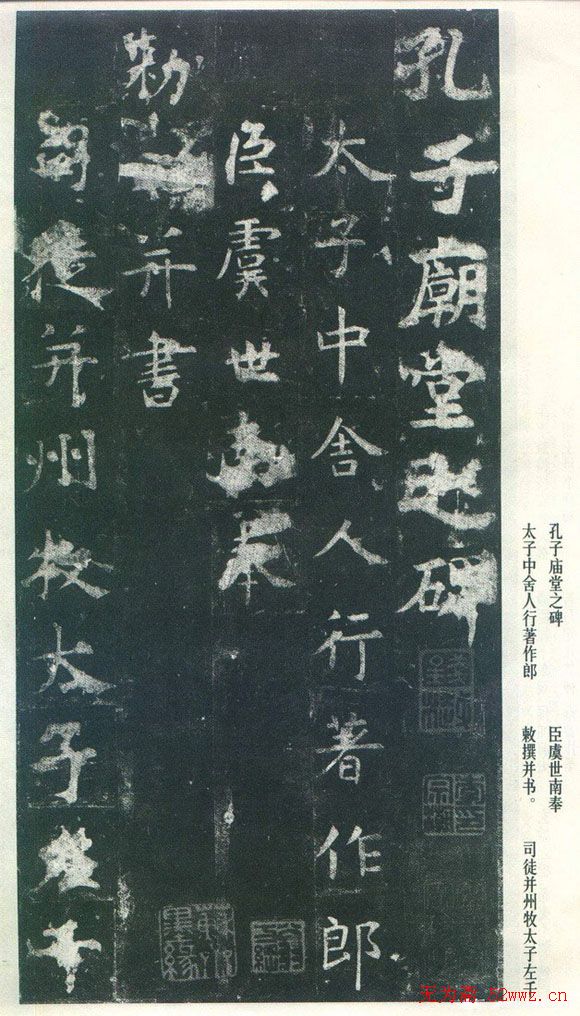 孔子庙堂之碑
太子中舍人行著作郎
臣虞世南奉
敕撰并书。
司徒并州牧太子左千
孔子廟堂之碑
太子中舍人行著作郎
臣虞世南奉
勑撰并書
司徒并州牧太子左千
52wwz.cn